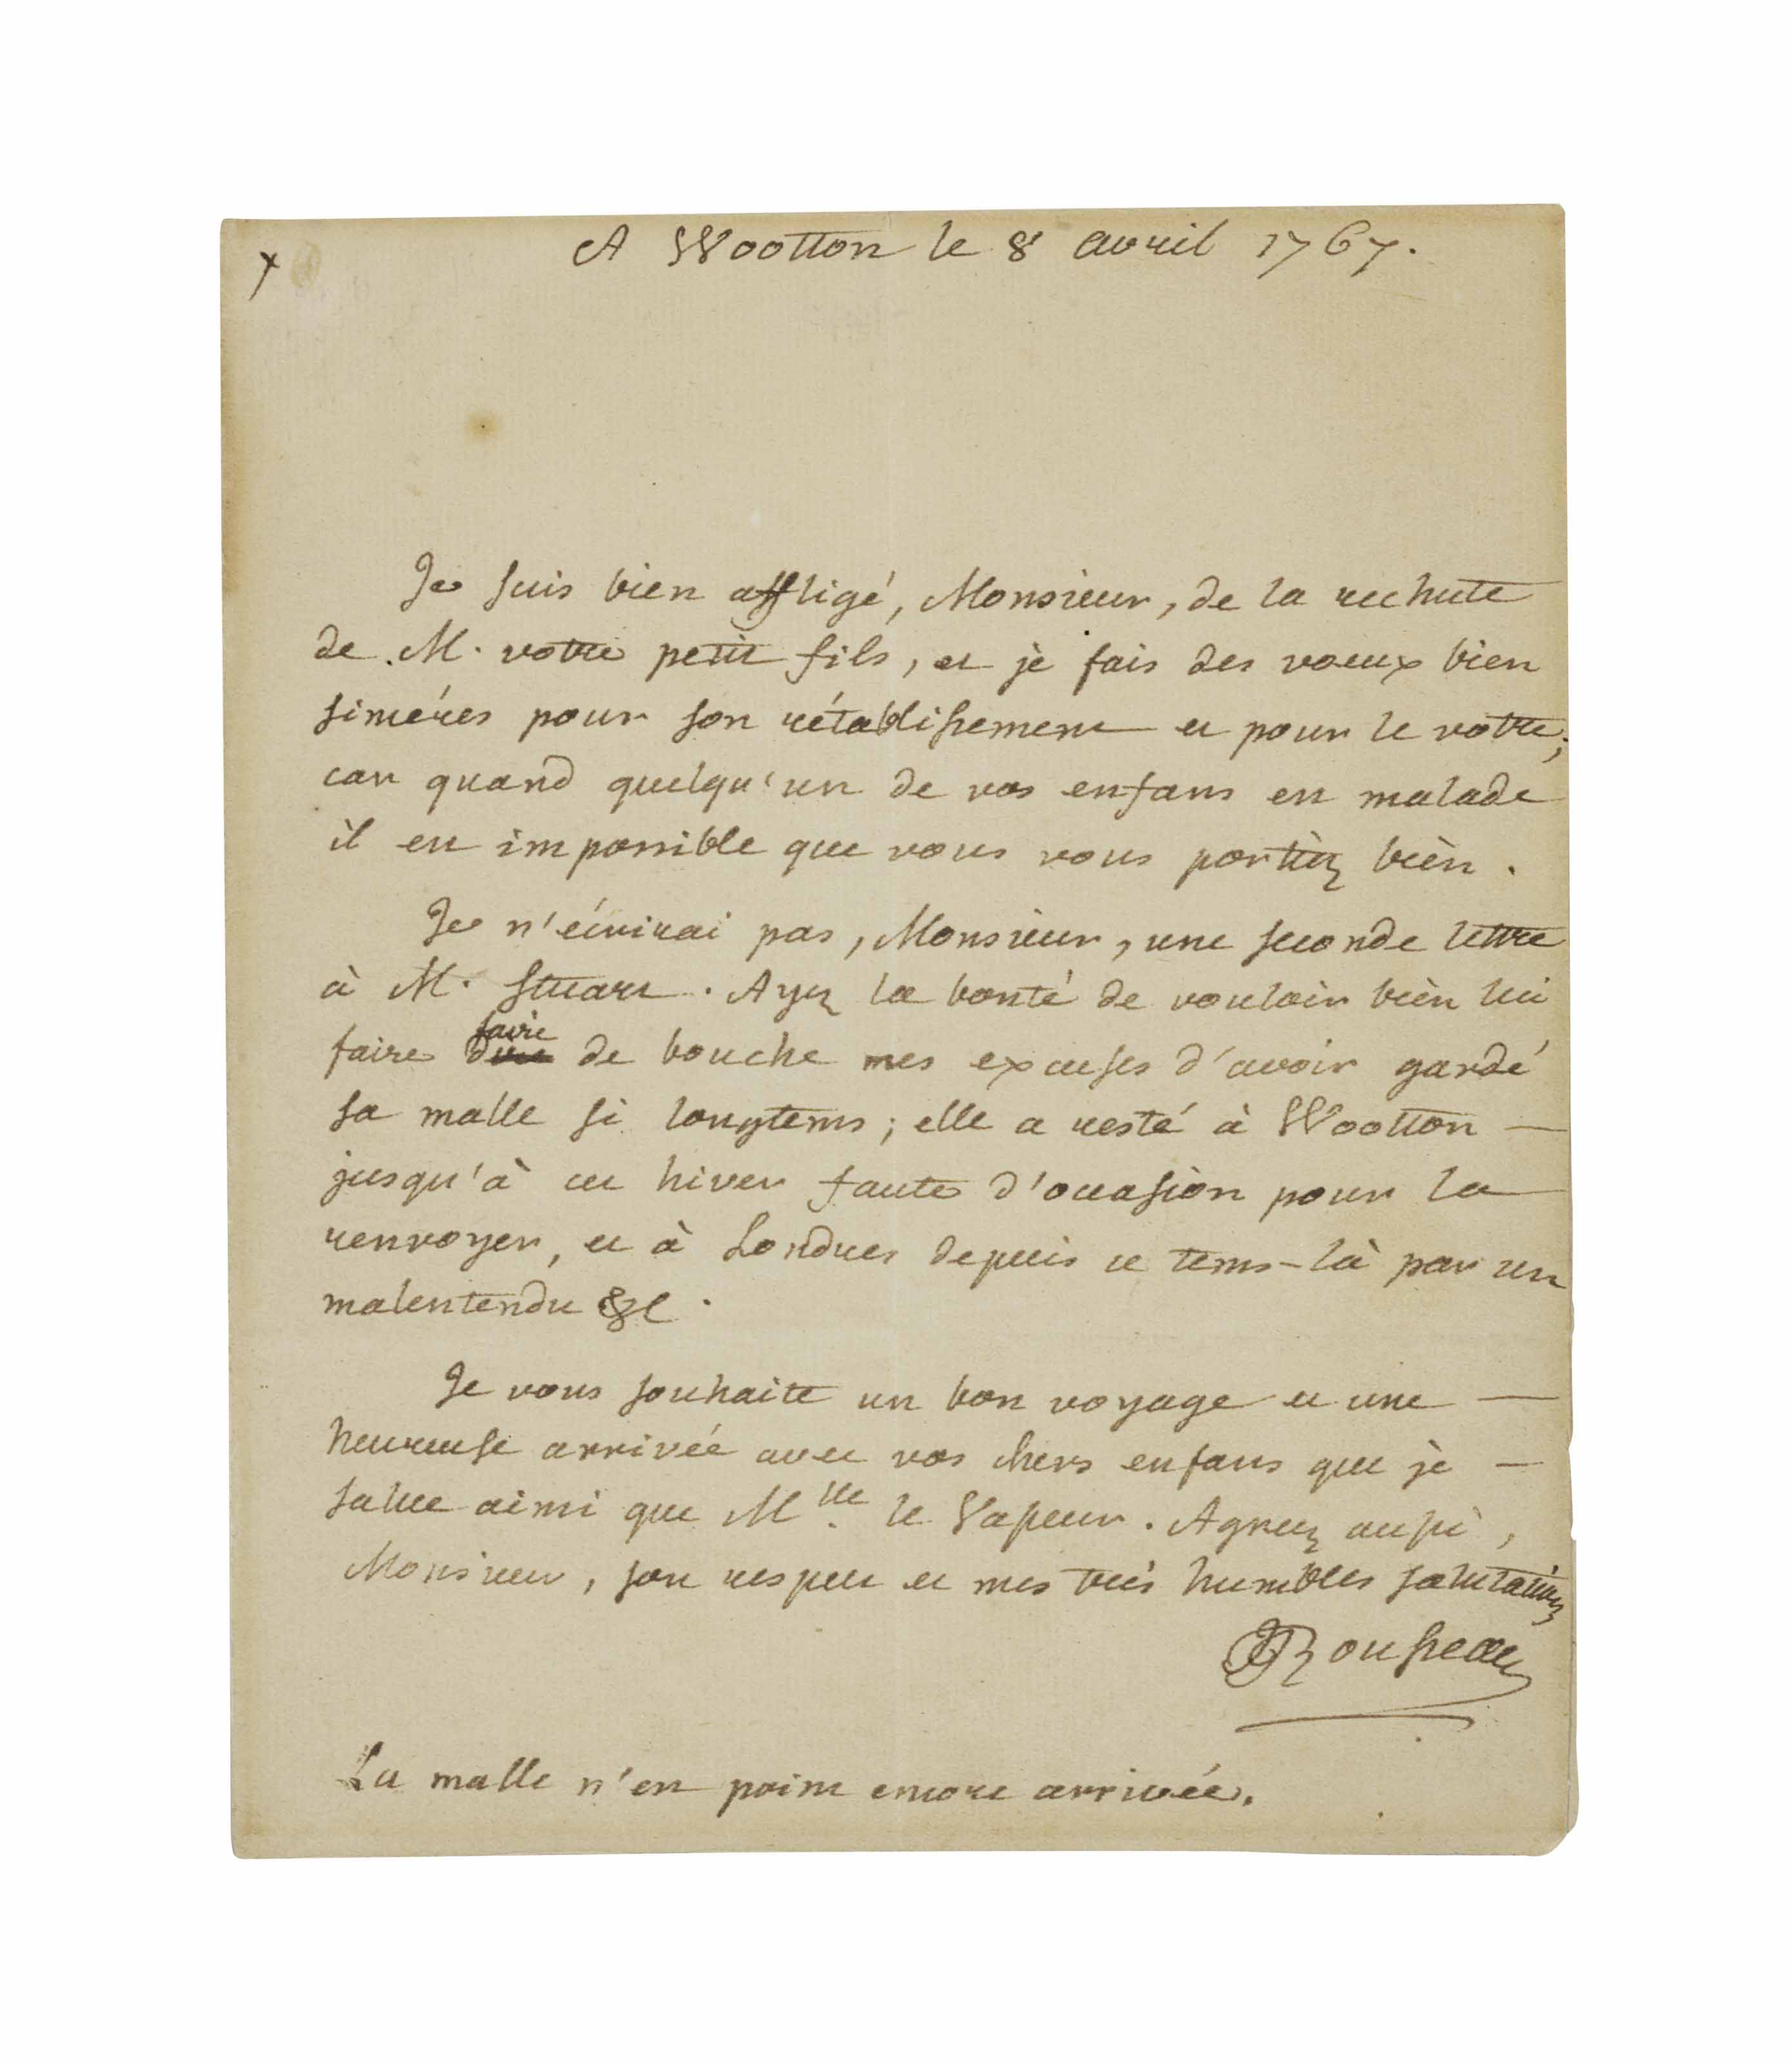 A Wootton le 8 avril 1767.
Je suis bien affligé, Monsieur, de la rechute
de M. votre petit fils, et je fais des vœux bien
sincéres pour son rétablissement et pour le votre;
car quand quelqu'un de vos enfans est malade
il est impossible que vous vous portiez bien.
Je n'écrirai pas, Monsieur, une seconde lettre
à M. Stuart. Ayez la bonté de vouloir bien lui
faire
faire de bouche mes excuses d'avoir gardé
sa malle si longtems; elle a resté à Wootton —
jusqu'à cet hiver faute d'occasion pour la
renvoyer, et à Londres depuis ce tems-là par un
malentendu &c.
Je vous souhaite un bon voyage et une —
heureuse arrivée avec vos chers enfans que je —
salue ainsi que Mlle. le Vasseur. Agréez aussi,
Monsieur, son respect et mes très humbles salutations
JJRousseau
La malle n'est point encore arrivée.